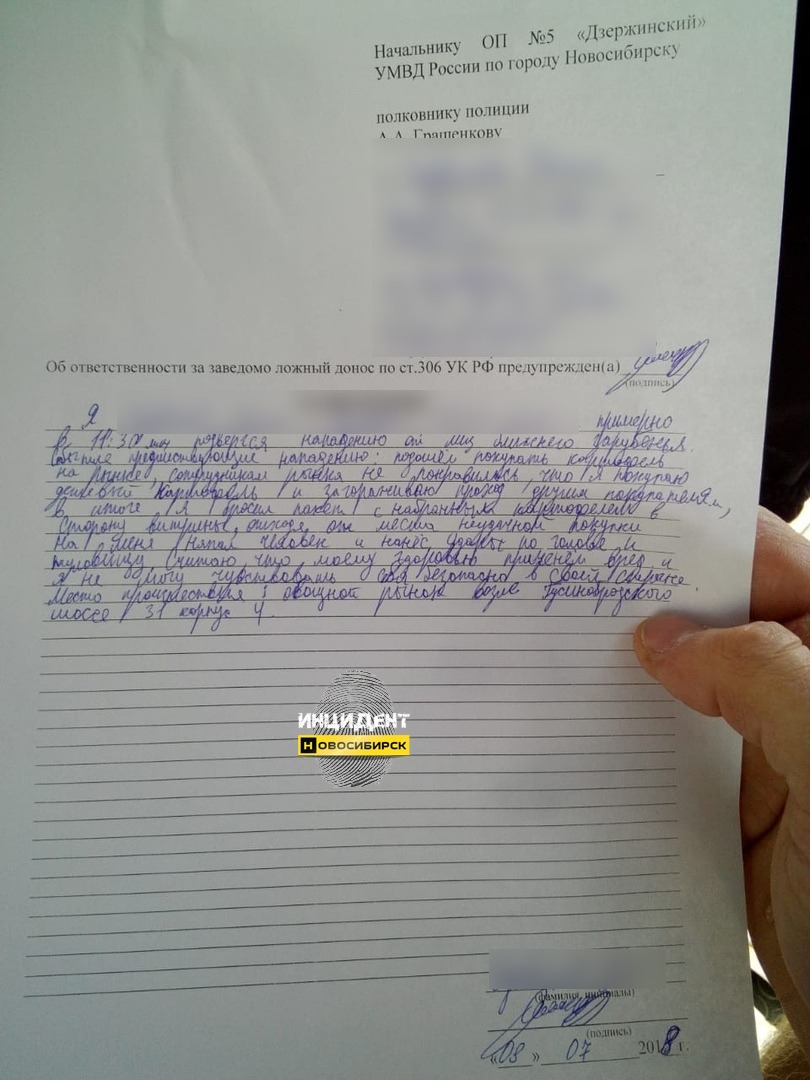 Начальнику ОП №5 «Дзержинский»
УМВД России по городу Новосибирску
полковнику полиции
А.А. Гращенкову
Об ответственности за заведомо ложный донос по ст.306 УК РФ предупрежден(а)
(подпись)
Я примерно
в 11:30 подвергся нападению от лиц ближнего зарубежья.
События предшествующие нападению: подошел покупать картофель
на рынке сотрудникам рынка не понравилось, что я покупаю
дешевый картофель и загораживаю проход другим покупателям,
в итоге я бросил пакет с набранным картофелем в
сторону витрины, отходя от места неудачной покупки
на меня напал человек и нанес удары по голове и
туловищу. Считаю что моему здоровью причинен вред и
я не могу чувствовать себя безопасно в своей стране.
Место происшествия: овощной рынок возле Гусинобродского
шоссе 31 корпус 4.
ИНЦИДЕНТ
НОВОСИБИРСК
(фамилия, инициалы)
(подпись)
«08» 07 2018 г.